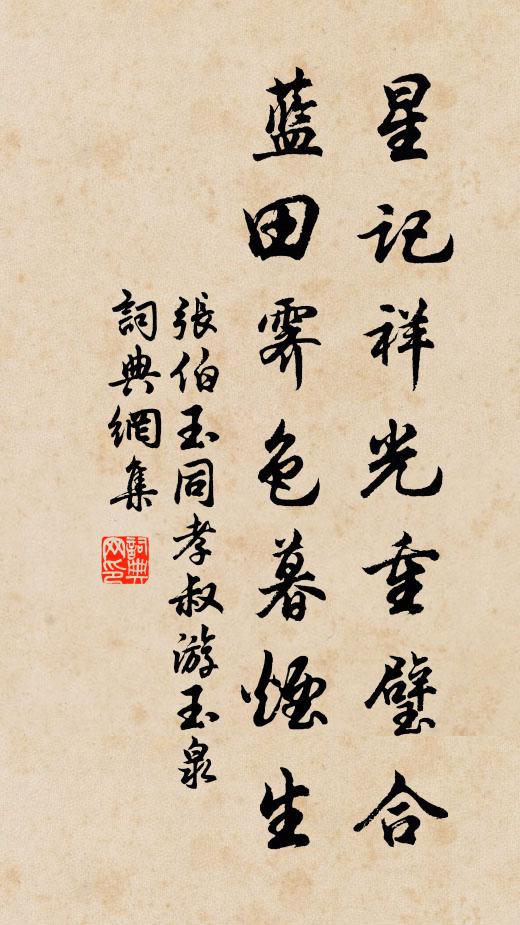 星記祥光重璧合
藍田霽色暮煙生
張伯玉同孝叔游玉泉
詞典網集
詞典网印